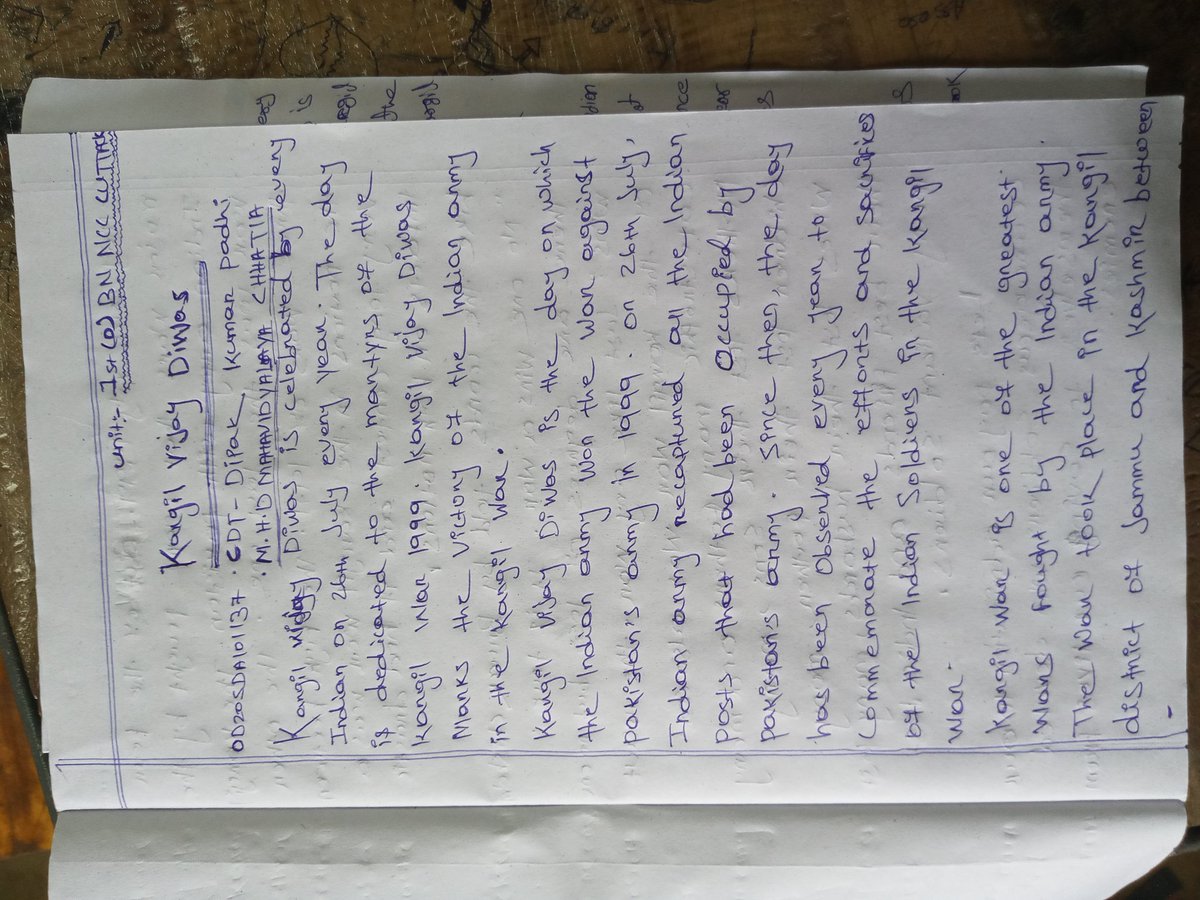 unit:- 1st (o) BN NCC CUTTAK
Kargil Vijay Diwas
OD20SDA101137 · CDT- Dipak Kumar padhi
· M.H.D MAHAVIDYALAYA CHHATIA
Kargil vijay Diwas is celebrated by every
Indian on 26th July every year. The day
is dedicated to the martyrs of the
Kargil War 1999. Kargil Vijay Diwas
Marks the Victory of the Indian army
in the Kargil War.
Kargil Vijay Diwas is the day on which
the Indian army Won the War against
pakistan's army in 1999. On 26th July,
Indian army recaptured all the Indian
posts that had been occupied by
pakistan's army. Since then, the day
has been observed every year to
Commemorate the efforts and sacrifices
of the Indian Soldiers in the Kargil
War.
Kargil War is one of the greatest
Wars fought by the Indian army
The War took place in the Kargil
district of Jammu and Kashmir between
is
the
nce